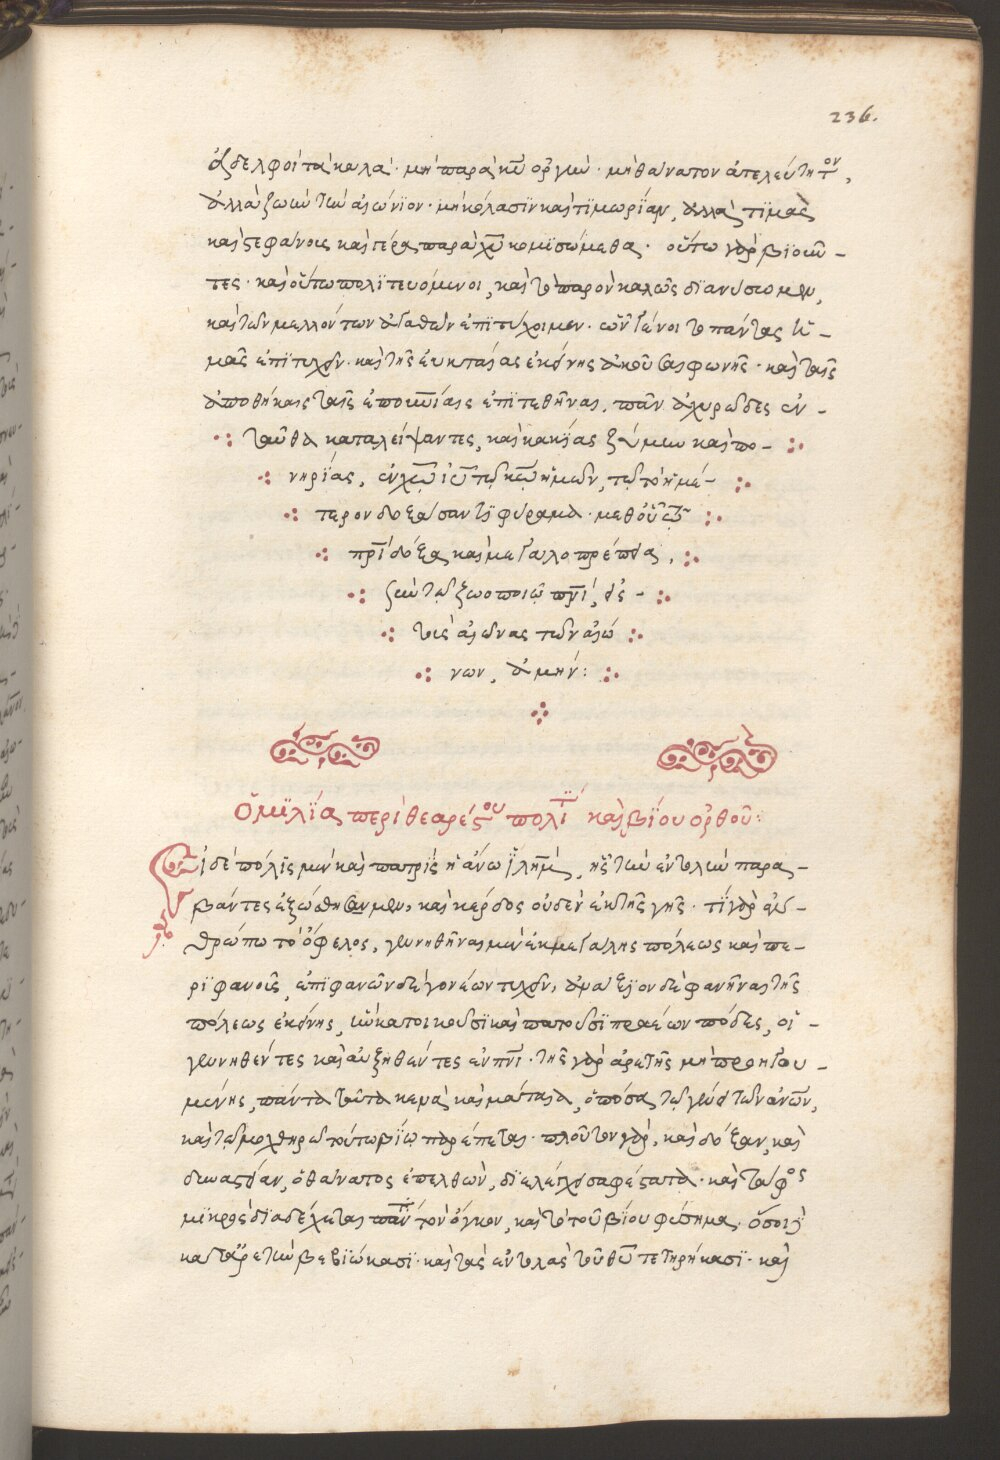 236.
ἀδελφοὶ τὰ καλά· μὴ παρὰ κυ ὀργὴν· μὴ θάνατον ἀτελεύτητον,
ἀλλὰ ζωὴν τὴν αἰώνιον· μὴ κόλασιν καὶ τιμωρίαν, ἀλλὰ τιμὰς
καὶ στεφάνους καὶ γέρα παρὰ χυ κομισώμεθα· οὕτω γὰρ βιοῦν-
τες· καὶ οὕτω πολιτευόμενοι, καὶ τὸ παρὸν καλῶς διανύσομεν,
καὶ τῶν μελλόντων ἀγαθῶν ἐπιτύχοιμεν· ὧν γένοιτο πάντας ἡ-
μᾶς ἐπιτυχεῖν· καὶ τῆς εὐκταίας ἐκείνης ἀκοῦσαι φωνῆς· καὶ ταῖς
ἀποθήκαις ταῖς ἐπουνίαις ἐπιτεθῆναι, πᾶν ἀχυρῶδες ἐν-
ταῦθα καταλείψαντες, καὶ κακίας ζύμην καὶ πο-
νηρίας, ἐν χω ιυ τῶ κω ἡμῶν, τῶ τὸ ἡμέ-
τερον δοξάσαντι φύραμα· μεθ' οὗ τῶ
πρι δόξα καὶ μεγαλοπρέπεια,
σὺν τῶ ζωοποιῶ πνι, εἰς
τοὺς αἰῶνας τῶν αἰώ
νων, ἀμήν:
Ὁμιλία περὶ θεαρέστου πολιτ καὶ βίου ὀρθοῦ:
Εἰ δὲ πόλις μὲν καὶ πατρὶς ἡ ἄνω ιλημ, ἧς τὴν ἐντολὴν παρα-
βάντες ἐξώσθημεν, καὶ κέρδος οὐδὲν ἐκ τῆς γῆς· τί γὰρ ἀν-
θρώπω τὸ ὄφελος, γεννηθῆναι μὲν ἐκ μεγάλης πόλεως καὶ πε-
ριφανοῦς, ἐπιφανῶν δὲ γονέων τυχεῖν, ἀνάξιον δὲ φανῆναι τῆς
πόλεως ἐκείνης, ἣν κατοικοῦσι καὶ πατοῦσι πραέων πόδες, οἱ
γεννηθέντες καὶ αὐξηθέντες ἐν πνι· τῆς γὰρ ἀρετῆς μὴ προηγου-
μένης, πάντα ταῦτα κενὰ καὶ μάταια, ὁπόσα τῶ γένει τῶν ἀνων,
καὶ τῶ μοχθηρῶ τούτω βίω παρέπεται· πλοῦτον γὰρ, καὶ δόξαν, καὶ
δυναστείαν, ὁ θάνατος ἐπελθὼν, διελέγχει σαφέστατα· καὶ τάφος
μικρὸς διαδέχεται πάντα τὸν ὄγκον, καὶ τὸ τοῦ βίου φύσημα· ὅσοι δὲ
κατ' ἀρετὴν βεβιώκασι· καὶ τὰς ἐντολὰς τοῦ θυ τετηρήκασι· καὶ